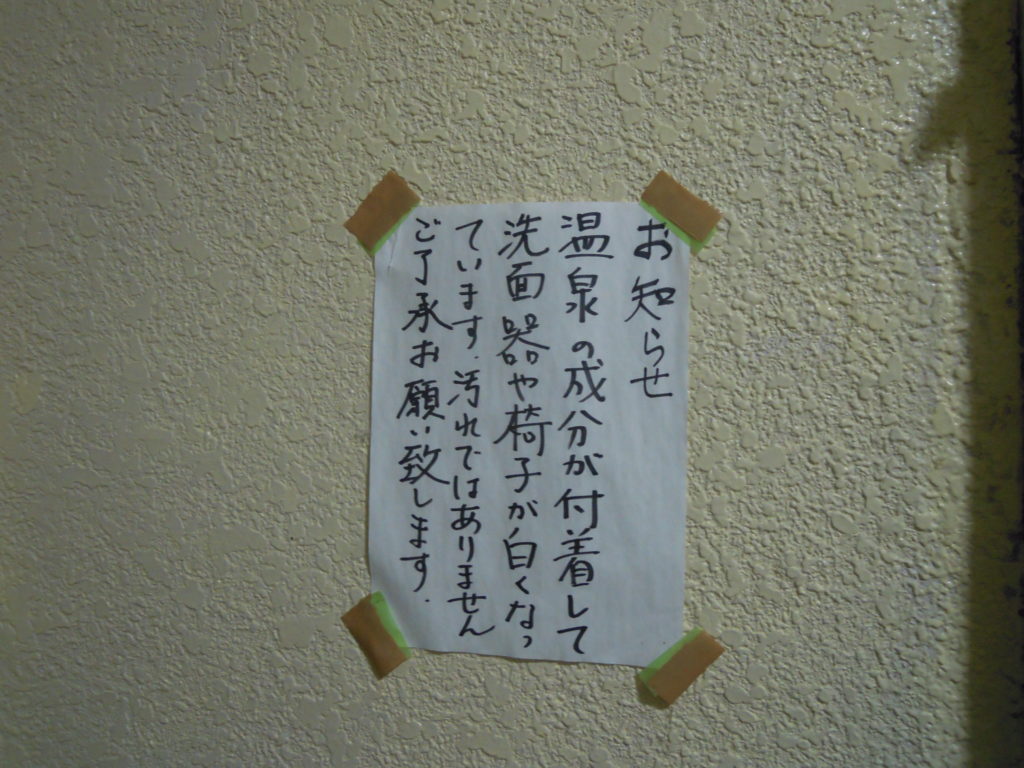 お知らせ
温泉の成分が付着して
洗面器や椅子が白くなっ
ています.汚れではありません
ご了承お願い致します.